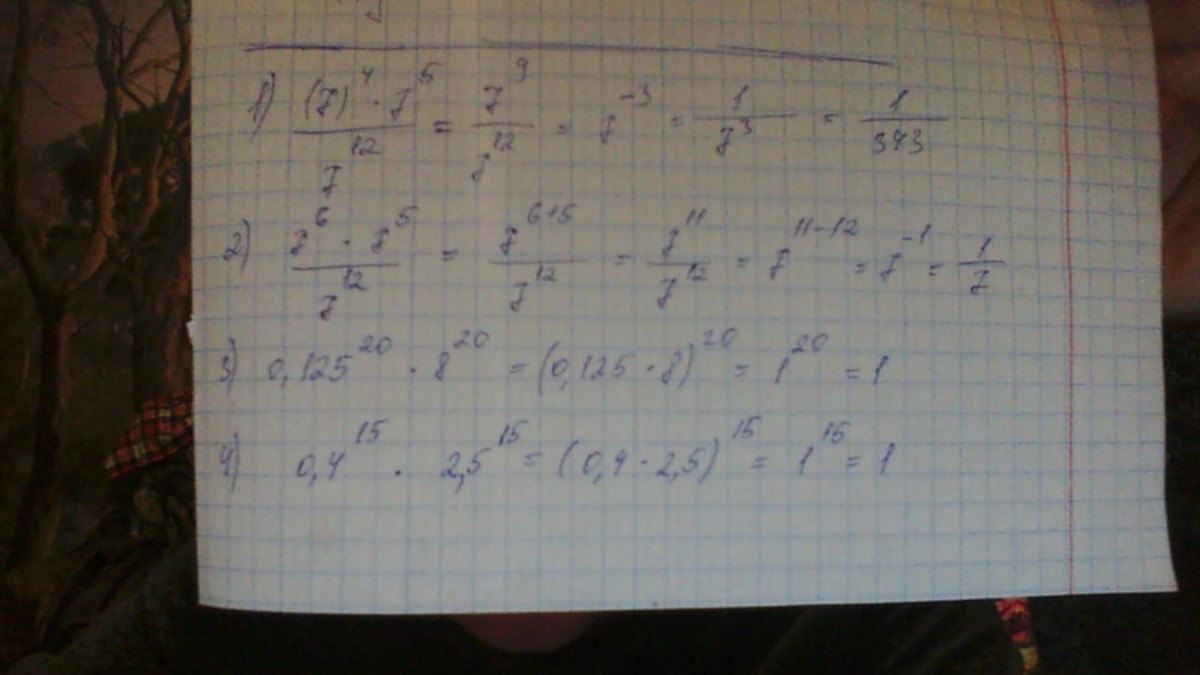 1) (7)⁴ · 7⁵ / 7¹² = 7⁹ / 7¹² = 7⁻³ = 1 / 7³ = 1 / 343
2) 7⁶ · 7⁵ / 7¹² = 7⁶⁺⁵ / 7¹² = 7¹¹ / 7¹² = 7¹¹⁻¹² = 7⁻¹ = 1 / 7
3) 0,125²⁰ · 8²⁰ = (0,125 · 8)²⁰ = 1²⁰ = 1
4) 0,4¹⁵ · 2,5¹⁵ = (0,4 · 2,5)¹⁵ = 1¹⁵ = 1